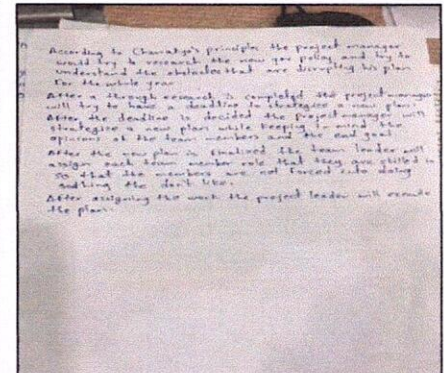 According to Chanakya's principles the project manager
would try to research the new gov policy and try to
understand the obstacles that are disrupting his plan
for the whole year
After a through research is completed the project manager
will try to have a deadline to strategise a new plan.
After the deadline is decided the project manager will
strategise a new plan while keeping in mind the
opinions of the team members and the end goal
After the new plan is finalised the team leader will
assign each team member role that they are skilled in
so that the members are not forced into doing
the don't like.
After assigning the work the project leader will execute
the plan.